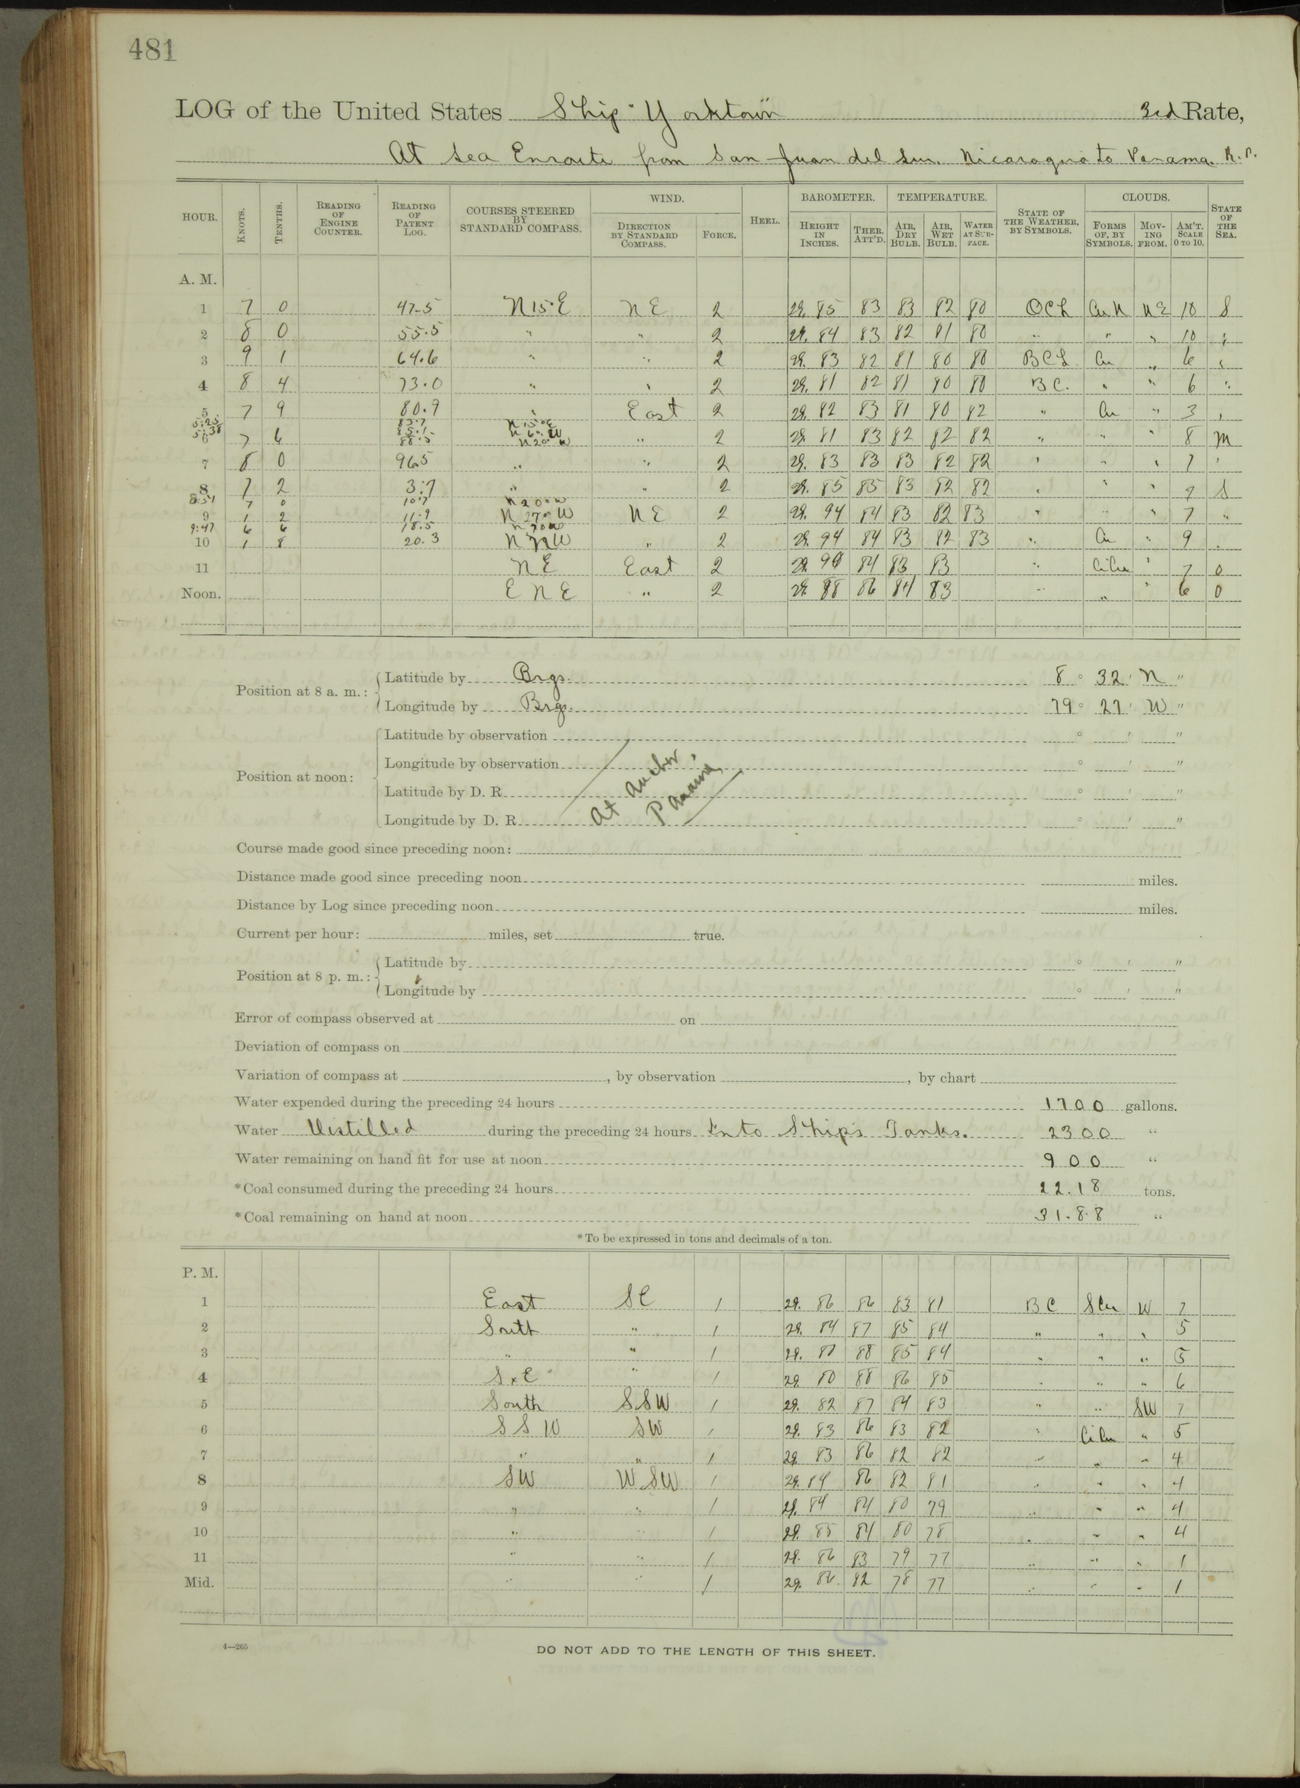 481
LOG of the United States Ship "Yorktown" 3rd Rate,
At Sea Enroute from San Juan del Sur. Nicaragua to Panama. R.P.
HOUR. KNOTS. TENTHS. READING OF ENGINE COUNTER. READING OF PATENT LOG. COURSES STEERED BY STANDARD COMPASS. WIND. DIRECTION BY STANDARD COMPASS. FORCE. HEEL. BAROMETER. HEIGHT IN INCHES. THER. ATT'D. TEMPERATURE. AIR, DRY BULB. AIR, WET BULB. WATER AT SURFACE. STATE OF THE WEATHER, BY SYMBOLS. CLOUDS. FORMS OF, BY SYMBOLS. MOVING FROM. AM'T. SCALE 0 TO 10. STATE OF THE SEA.
A. M.
1 7 0 47.5 N 15° E N E 2 29. 85 83 83 82 80 OCL CuN NE 10 S
2 8 0 55.5 " " 2 29. 84 83 82 81 80 " " " 10 "
3 9 1 64.6 " " 2 29. 83 82 81 80 80 BCL Cu " 6 "
4 8 4 73.0 " " 2 29. 81 82 81 80 80 B C. " " 6 "
5 7 9 80.9 " East 2 29. 82 83 81 80 82 " Cu " 3 "
5:25 N 15° E
5:38 85.1 N 6° W
6 7 6 88.5 N 20° W " 2 29. 81 83 82 82 82 " " " 8 M
7 8 0 96.5 " " 2 29. 83 83 83 82 82 " " " 7 "
8 7 2 3.7 " " 2 29. 85 85 83 82 82 " " " 7 S
8:54 7 0 10.7 N 20° W
9 1 2 11.9 N 27° W N E 2 29. 94 84 83 82 83 " " " 7 "
9:47 6 6 18.5
10 1 8 20.3 " 2 29. 94 84 83 82 83 " Cu " 9 "
11 N E East 2 29. 90 84 83 83 " CiCu " 7 0
Noon. E N E " 2 29. 88 86 84 83 " " " 6 0
Position at 8 a. m.: Latitude by Brgs. 8 ° 32 ' N "
Longitude by Brgs. 79 ° 27 ' W "
Position at noon: Latitude by observation ° ' "
Longitude by observation ° ' "
Latitude by D. R. ° ' "
Longitude by D. R. ° ' "
At Anchor,
Panama,
Course made good since preceding noon:
Distance made good since preceding noon miles.
Distance by Log since preceding noon miles.
Current per hour: miles, set true.
Position at 8 p. m.: Latitude by ° ' "
Longitude by ° ' "
Error of compass observed at on
Deviation of compass on
Variation of compass at , by observation , by chart
Water expended during the preceding 24 hours 1700 gallons.
Water Distilled during the preceding 24 hours Into Ship's Tanks. 2300 "
Water remaining on hand fit for use at noon 900 "
*Coal consumed during the preceding 24 hours 22.18 tons.
*Coal remaining on hand at noon 31.88 "
*To be expressed in tons and decimals of a ton.
P. M.
1 East SE 1 29. 86 86 83 81 B C SCu W 7
2 South " 1 29. 84 87 85 84 " " " 5
3 " " 1 29. 81 88 85 84 " " " 5
4 SxE " 1 29. 80 88 86 85 " " " 6
5 South SSW 1 29. 82 87 84 83 " " SW 7
6 SSW SW 1 29. 83 86 83 82 " CiCu " 5
7 " " 1 29. 83 86 82 82 " " " 4
8 SW WSW 1 29. 84 86 82 81 " " " 4
9 " " 1 29. 84 84 80 79 " " " 4
10 " " 1 29. 85 84 80 78 " " " 4
11 " " 1 29. 86 83 79 77 " " " 1
Mid. " " 1 29. 86 82 78 77 " " " 1
4—265
DO NOT ADD TO THE LENGTH OF THIS SHEET.